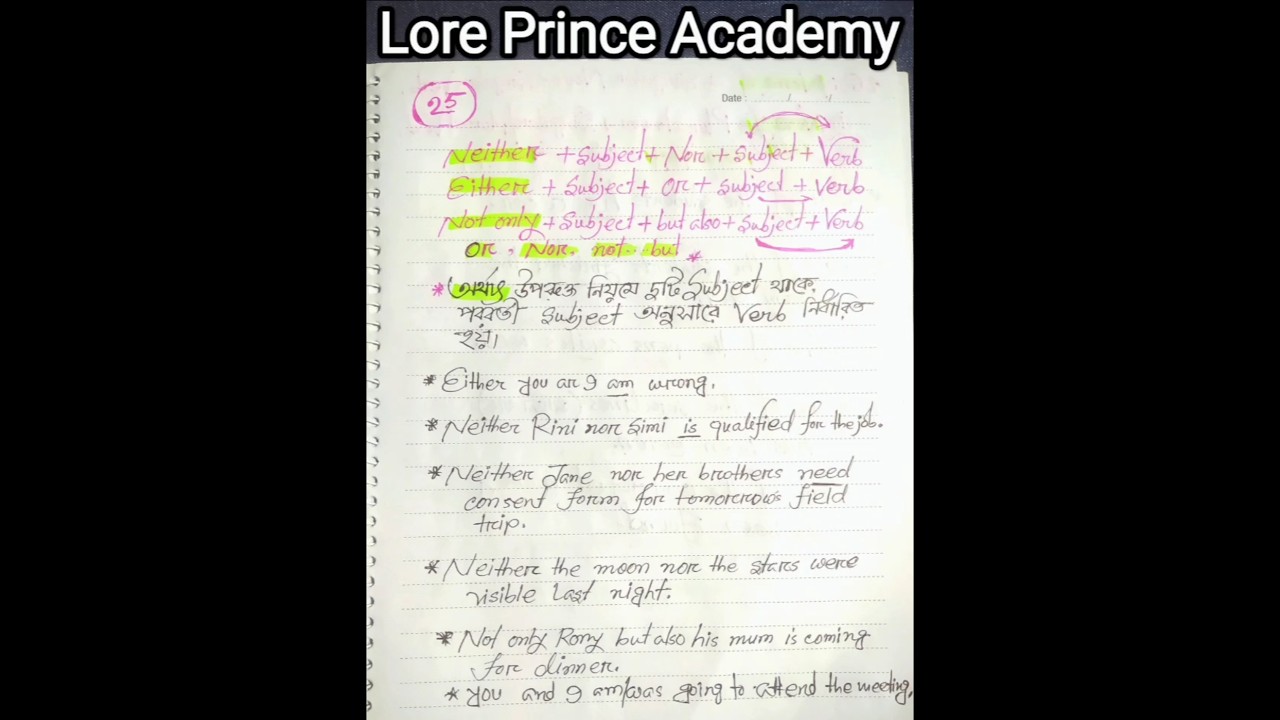 Lore Prince Academy
25
Date : / /
Neither + Subject + Nor + Subject + Verb
Either + Subject + Or + Subject + Verb
Not only + Subject + but also + Subject + Verb
Or, Nor. not.. but *
* অর্থাৎ উপরুক্ত নিয়মে দুটি Subject থাকে,
পরবর্তী Subject অনুসারে Verb নির্ধারিত
হয়।
* Either you or I am wrong.
* Neither Rini nor Simi is qualified for the job.
* Neither Jane nor her brothers need
consent form for tomorrows field
trip.
* Neither the moon nor the stars were
visible last night.
* Not only Rony but also his mum is coming
for dinner.
* you and I am/was going to attend the meeting,